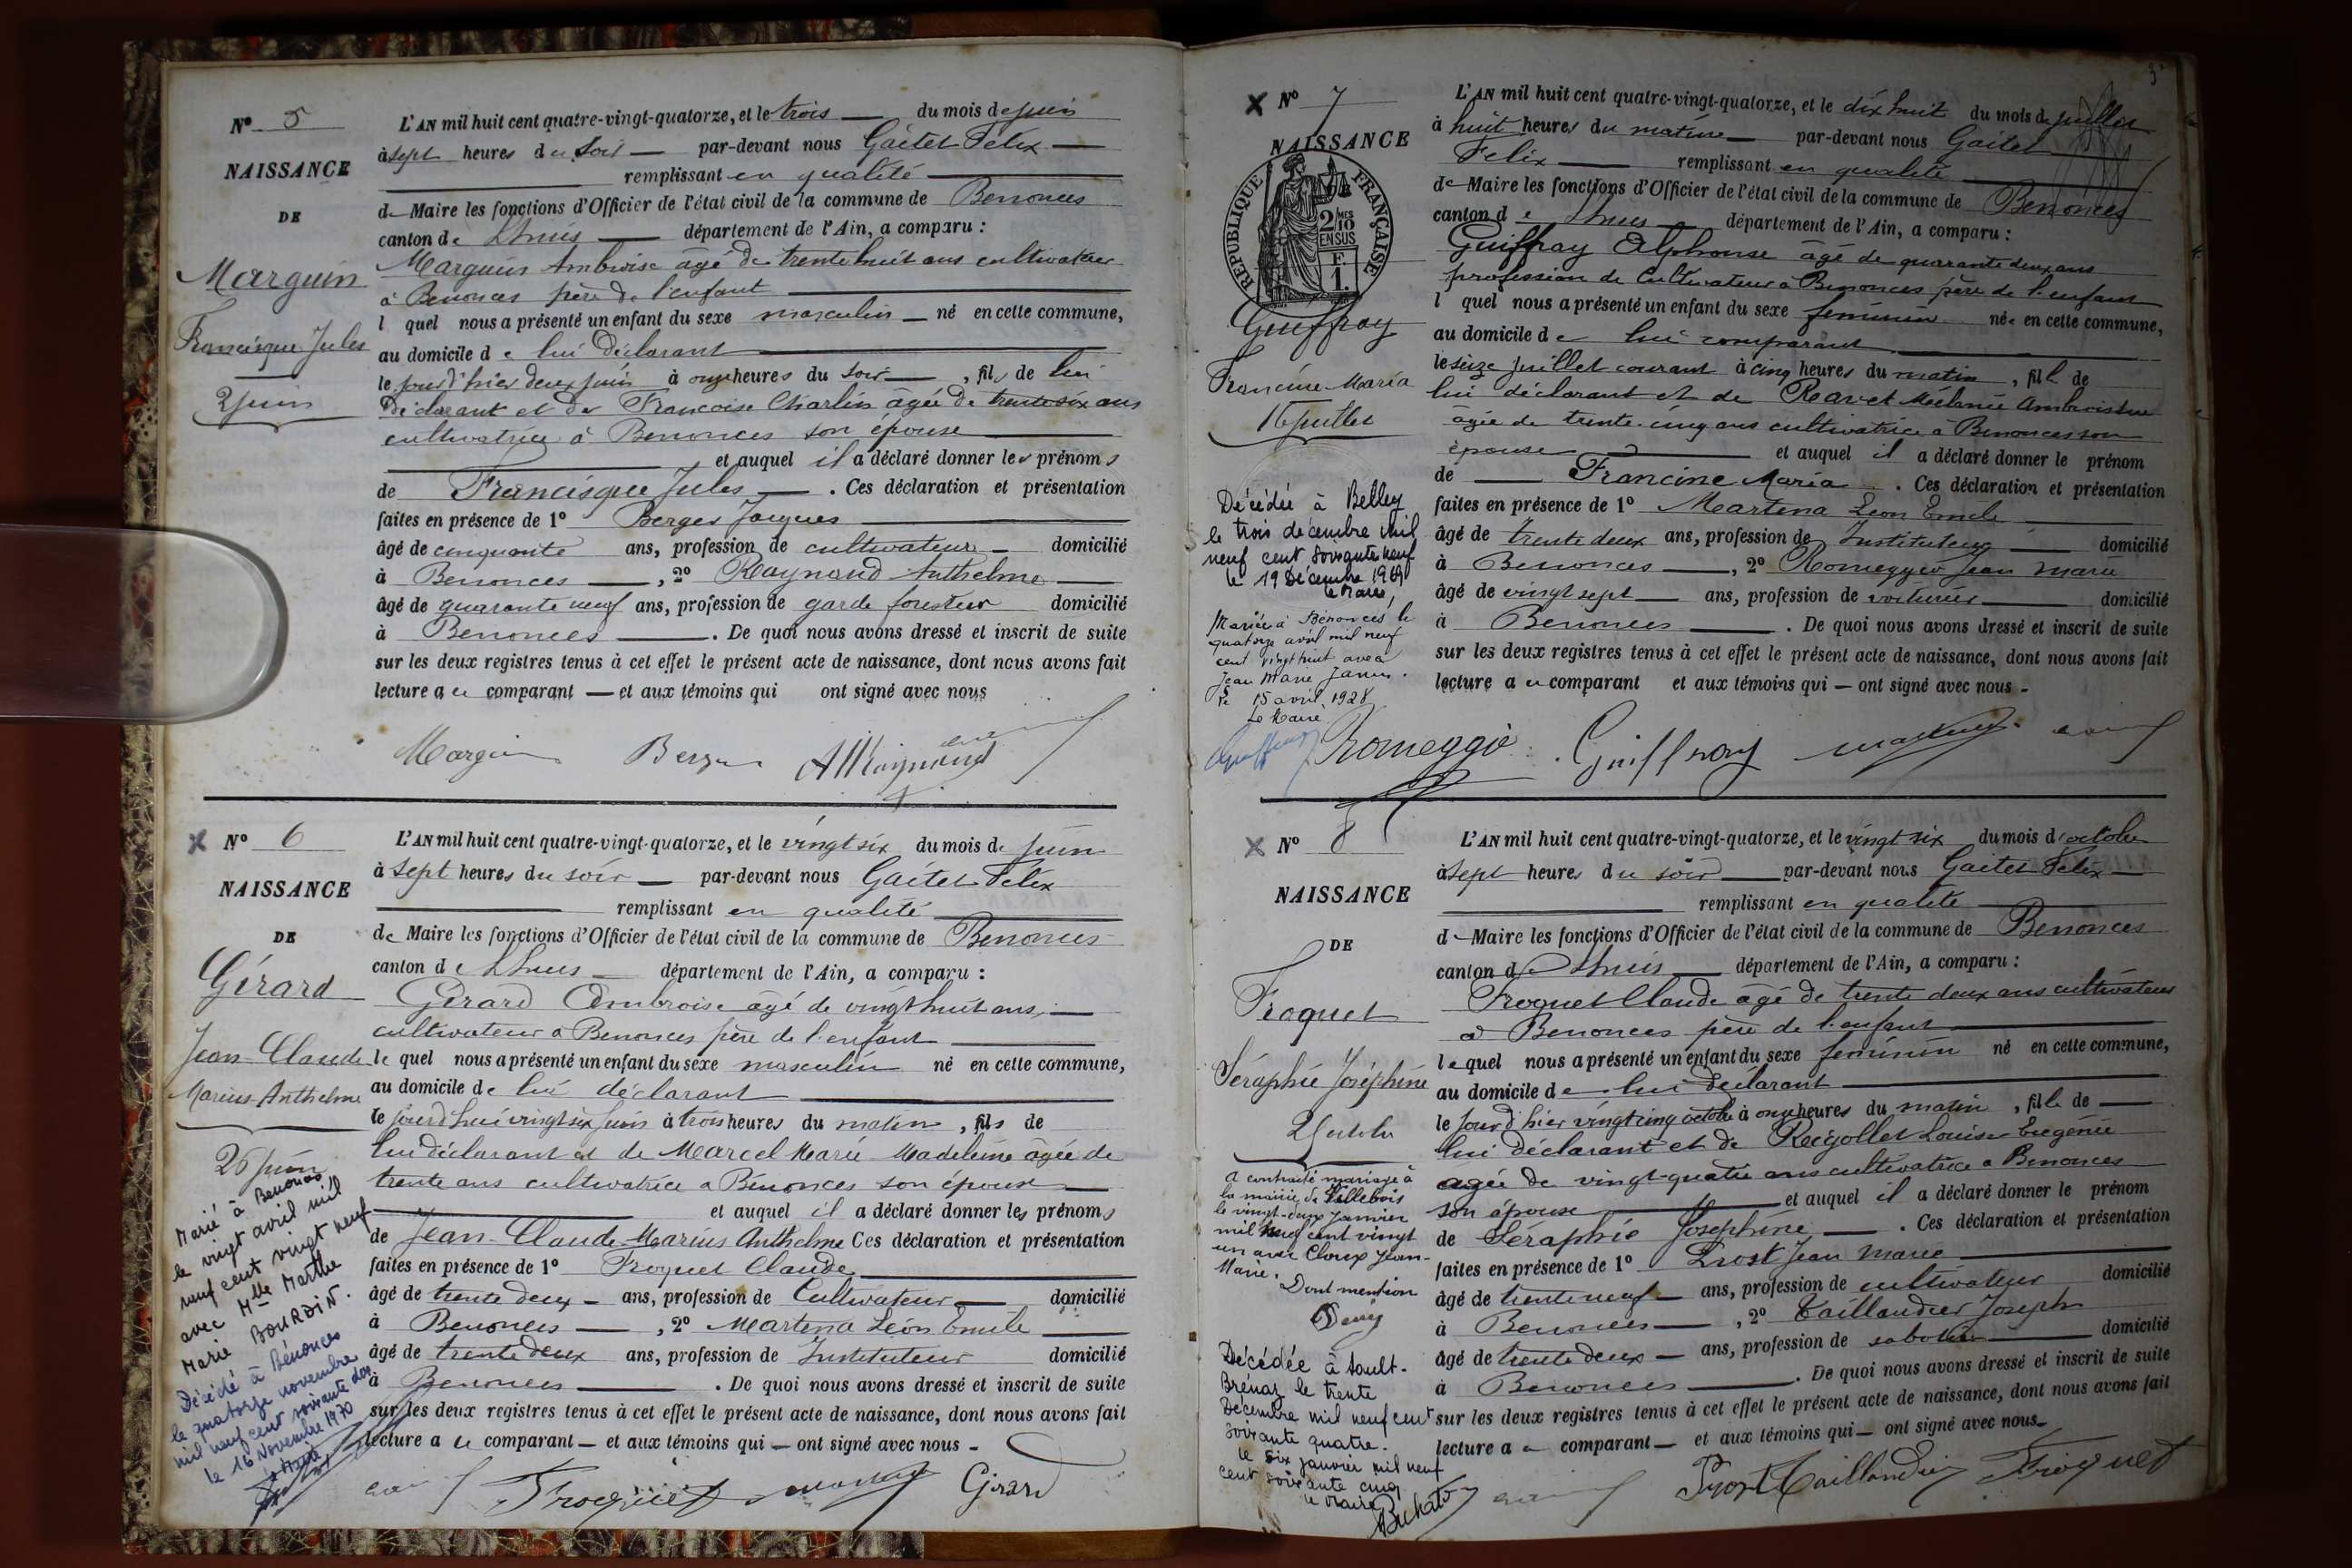 N° 5
NAISSANCE
DE
Marguin
Francisque Jules
2 juin
L'AN mil huit cent quatre-vingt-quatorze, et le trois du mois de juin
à sept heures du soir par-devant nous Gaitet Félix
remplissant en qualité
de Maire les fonctions d'Officier de l'état civil de la commune de Benonces
canton de Lhuis département de l'Ain, a comparu :
Marguin Ambroise âgé de trente huit ans cultivateur
à Benonces père de l'enfant
l quel nous a présenté un enfant du sexe masculin né en cette commune,
au domicile de lui déclarant
le jour d'hier deux juin à onze heures du soir, fils de lui
déclarant et de Francoise Charlin âgée de trente six ans
cultivatrice à Benonces son épouse
et auquel il a déclaré donner les prénoms
de Francisque Jules. Ces déclaration et présentation
faites en présence de 1° Berger Jacques
âgé de cinquante ans, profession de cultivateur domicilié
à Benonces, 2° Raynaud Anthelme
âgé de quarante neuf ans, profession de garde forestier domicilié
à Benonces. De quoi nous avons dressé et inscrit de suite
sur les deux registres tenus à cet effet le présent acte de naissance, dont nous avons fait
lecture au comparant et aux témoins qui ont signé avec nous
Marguin Berger
N° 6
NAISSANCE
DE
Gérard
Jean-Claude
Marius-Anthelme
26 juin
Marié à Benonces
le vingt avril mil
neuf cent vingt neuf
avec Mlle Marthe
Marie BOURDIN.
Décédé à Bénonces
le quatorze novembre
mil neuf cent soixante dix
le 16 Novembre 1970
L'AN mil huit cent quatre-vingt-quatorze, et le vingt six du mois de juin
à sept heures du soir par-devant nous Gaitet Félix
remplissant en qualité
de Maire les fonctions d'Officier de l'état civil de la commune de Benonces
canton de Lhuis département de l'Ain, a comparu :
Gérard Ambroise âgé de vingt huit ans,
cultivateur à Benonces père de l'enfant
le quel nous a présenté un enfant du sexe masculin né en cette commune,
au domicile de lui déclarant
le jourd'hui vingt six juin à trois heures du matin, fils de
lui déclarant et de Marcel Marie Madeleine âgée de
trente ans cultivatrice à Bénonces son épouse
et auquel il a déclaré donner les prénoms
de Jean-Claude-Marius Anthelme Ces déclaration et présentation
faites en présence de 1° Froquet Claude
âgé de trente deux ans, profession de Cultivateur domicilié
à Benonces, 2° Martena Léon Emile
âgé de trente deux ans, profession de Instituteur domicilié
à Benonces. De quoi nous avons dressé et inscrit de suite
sur les deux registres tenus à cet effet le présent acte de naissance, dont nous avons fait
lecture au comparant et aux témoins qui ont signé avec nous
Froquet Girard
3
N° 7
NAISSANCE
REPUBLIQUE FRANÇAISE
2/10 MES EN SUS
F. 1.
Guiffray
Francine-Maria
16 juillet
Décédée à Belley
le trois décembre mil
neuf cent soixante neuf
le 19 Décembre 1969
le Maire,
Mariée à Bénonces le
quatorze avril mil neuf
cent vingt huit avec
Jean Marie
le 15 avril 1928
Le Maire
L'AN mil huit cent quatre-vingt-quatorze, et le dix huit du mois de juillet
à huit heures du matin par-devant nous Gaitet
Félix remplissant en qualité
de Maire les fonctions d'Officier de l'état civil de la commune de Benonces
canton de Lhuis département de l'Ain, a comparu :
Guiffray Alphonse âgé de quarante deux ans
profession de Cultivateur à Benonces père de l'enfant
l quel nous a présenté un enfant du sexe féminin née en cette commune,
au domicile de lui comparant
le seize juillet courant à cinq heures du matin, fille de
lui déclarant et de Ravet Mélanie Ambroisine
âgée de trente-cinq ans cultivatrice à Benonces son
épouse et auquel il a déclaré donner le prénom
de Francine Maria. Ces déclaration et présentation
faites en présence de 1° Martena Léon Emile
âgé de trente deux ans, profession de Instituteur domicilié
à Benonces, 2° Romeggio Jean Marie
âgé de vingt sept ans, profession de voiturier domicilié
à Benonces. De quoi nous avons dressé et inscrit de suite
sur les deux registres tenus à cet effet le présent acte de naissance, dont nous avons fait
lecture au comparant et aux témoins qui ont signé avec nous
Romeggio Guiffray
N° 8
NAISSANCE
DE
Froquet
Séraphie Joséphine
A contracté mariage à
la mairie de Villebois
le vingt-deux janvier
mil neuf cent vingt
un avec Cloux Jean-
Marie.
Dont mention
Décédée à Soult-
Brénaz le trente
Décembre mil neuf cent
soixante quatre.
le six janvier mil neuf
cent soixante cinq
le Maire
L'AN mil huit cent quatre-vingt-quatorze, et le vingt six du mois d'octobre
à sept heures du soir par-devant nous Gaitet Félix
remplissant en qualité
de Maire les fonctions d'Officier de l'état civil de la commune de Benonces
canton de Lhuis département de l'Ain, a comparu :
Froquet Claude âgé de trente deux ans cultivateur
à Benonces père de l'enfant
lequel nous a présenté un enfant du sexe féminin né en cette commune,
au domicile de lui déclarant
le jour d'hier vingt cinq octobre à onze heures du matin, fille de
lui déclarant et de Louise Eugénie
agée de vingt-quatre ans cultivatrice a Benonces
son épouse et auquel il a déclaré donner le prénom
de Séraphie Joséphine. Ces déclaration et présentation
faites en présence de 1° Prost Jean Marie
âgé de trente neuf ans, profession de cultivateur domicilié
à Benonces, 2° Taillandier Joseph
âgé de trente deux ans, profession de sabotier domicilié
à Benonces. De quoi nous avons dressé et inscrit de suite
sur les deux registres tenus à cet effet le présent acte de naissance, dont nous avons fait
lecture au comparant et aux témoins qui ont signé avec nous
Prost Taillandier Froquet